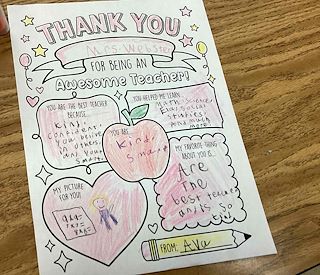 THANK YOU
Mrs. Webster
FOR BEING AN
Awesome Teacher!
YOU ARE THE BEST TEACHER
BECAUSE...
kind,
confident,
you believe
in others,
and your
smart.
YOU HELPED ME LEARN
Math, Science,
Ela, Social
studies,
and much
more!
YOU ARE...
Kind,
Smart
MY FAVORITE THING
ABOUT YOU IS...
Are
The
best teacher
and is so
MY PICTURE
FOR YOU!
FROM: Ava